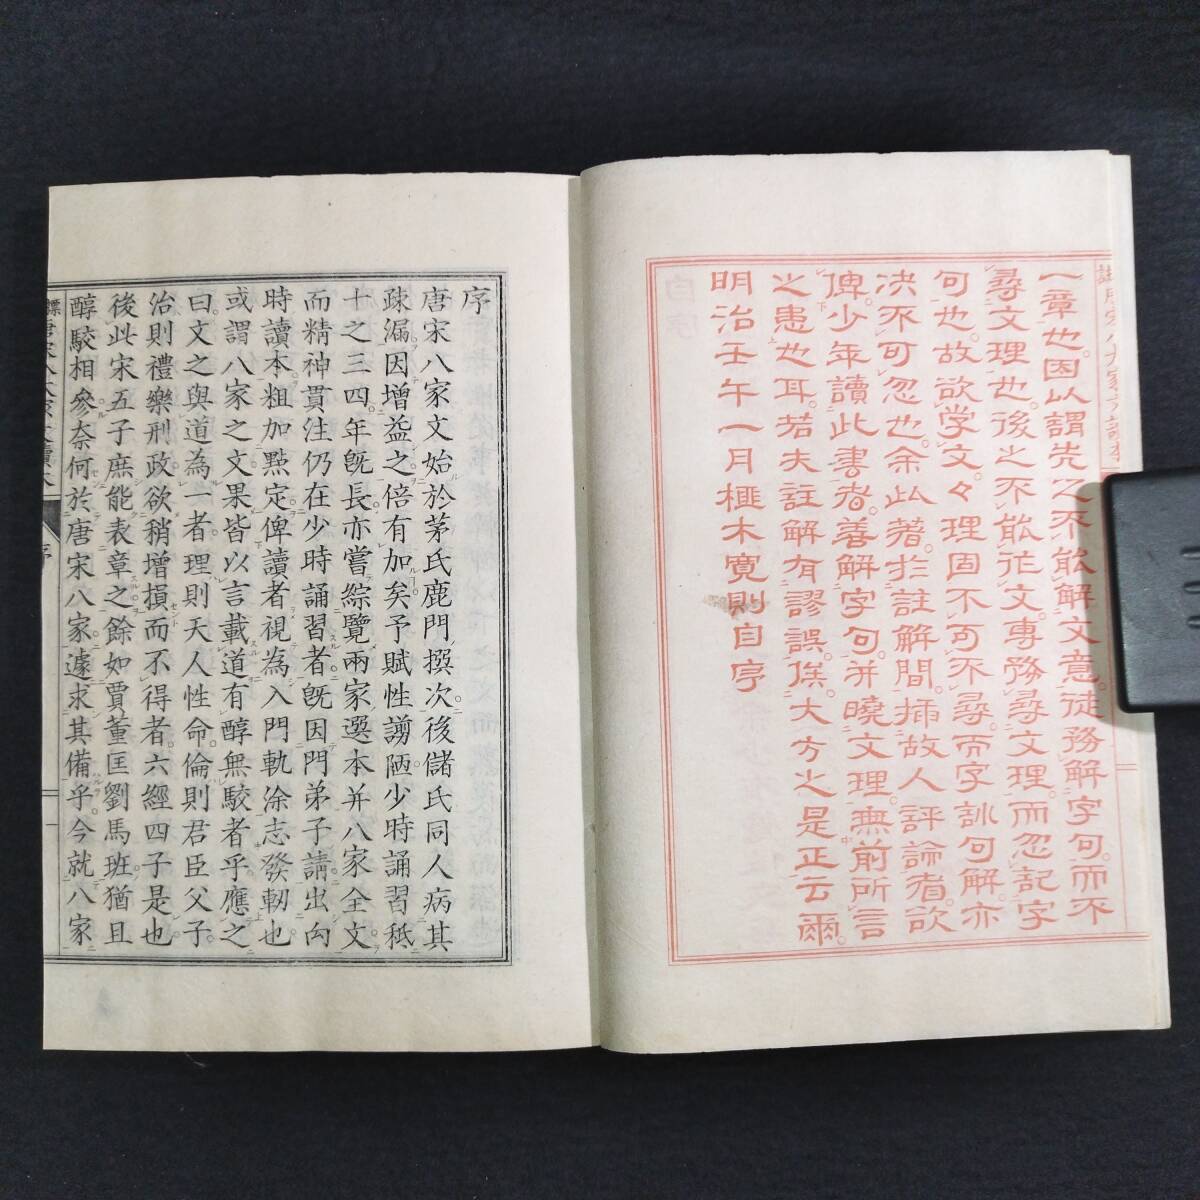 一章也。因以謂先之不能解文意。徒務解字句。而不
尋文理也。後之不能作文。專務尋文理。而忽記字
句也。故欲學文。々理固不可不尋。而字訓句解。亦
決不可忽也。余此著。於註解間。插故人評論者。欲
俾少年讀此書者。善解字句。并曉文理。無前所言
之患也耳。若夫註解有謬誤。俟大方之是正云爾。
明治壬午一月榧木寬則自序
序
唐宋八家文始於茅氏鹿門撰次。後儲氏同人病其
疎漏因增益之。倍有加矣。予賦性謭陋少時誦習秖
十之三四。年旣長。亦嘗綜覽兩家選本并八家全文
而精神貫注仍在少時誦習者旣因門弟子請出向
時讀本粗加點定俾讀者視為入門軌涂志發軔也
或謂八家之文果皆以言載道有醇無駁者乎應之
曰。文之與道為一者。理則天人性命。倫則君臣父子
治則禮樂刑政。欲稍增損而不得者。六經四子是也
後此宋五子庶能表章之餘如賈董匡劉馬班猶且
醇駁相參柰何於唐宋八家遽求其備乎。今就八家
序